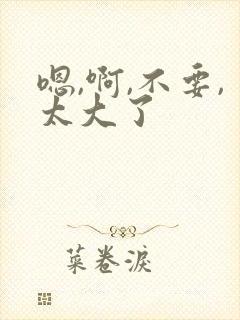 嗯,啊,不要,
太大了
菜卷淚